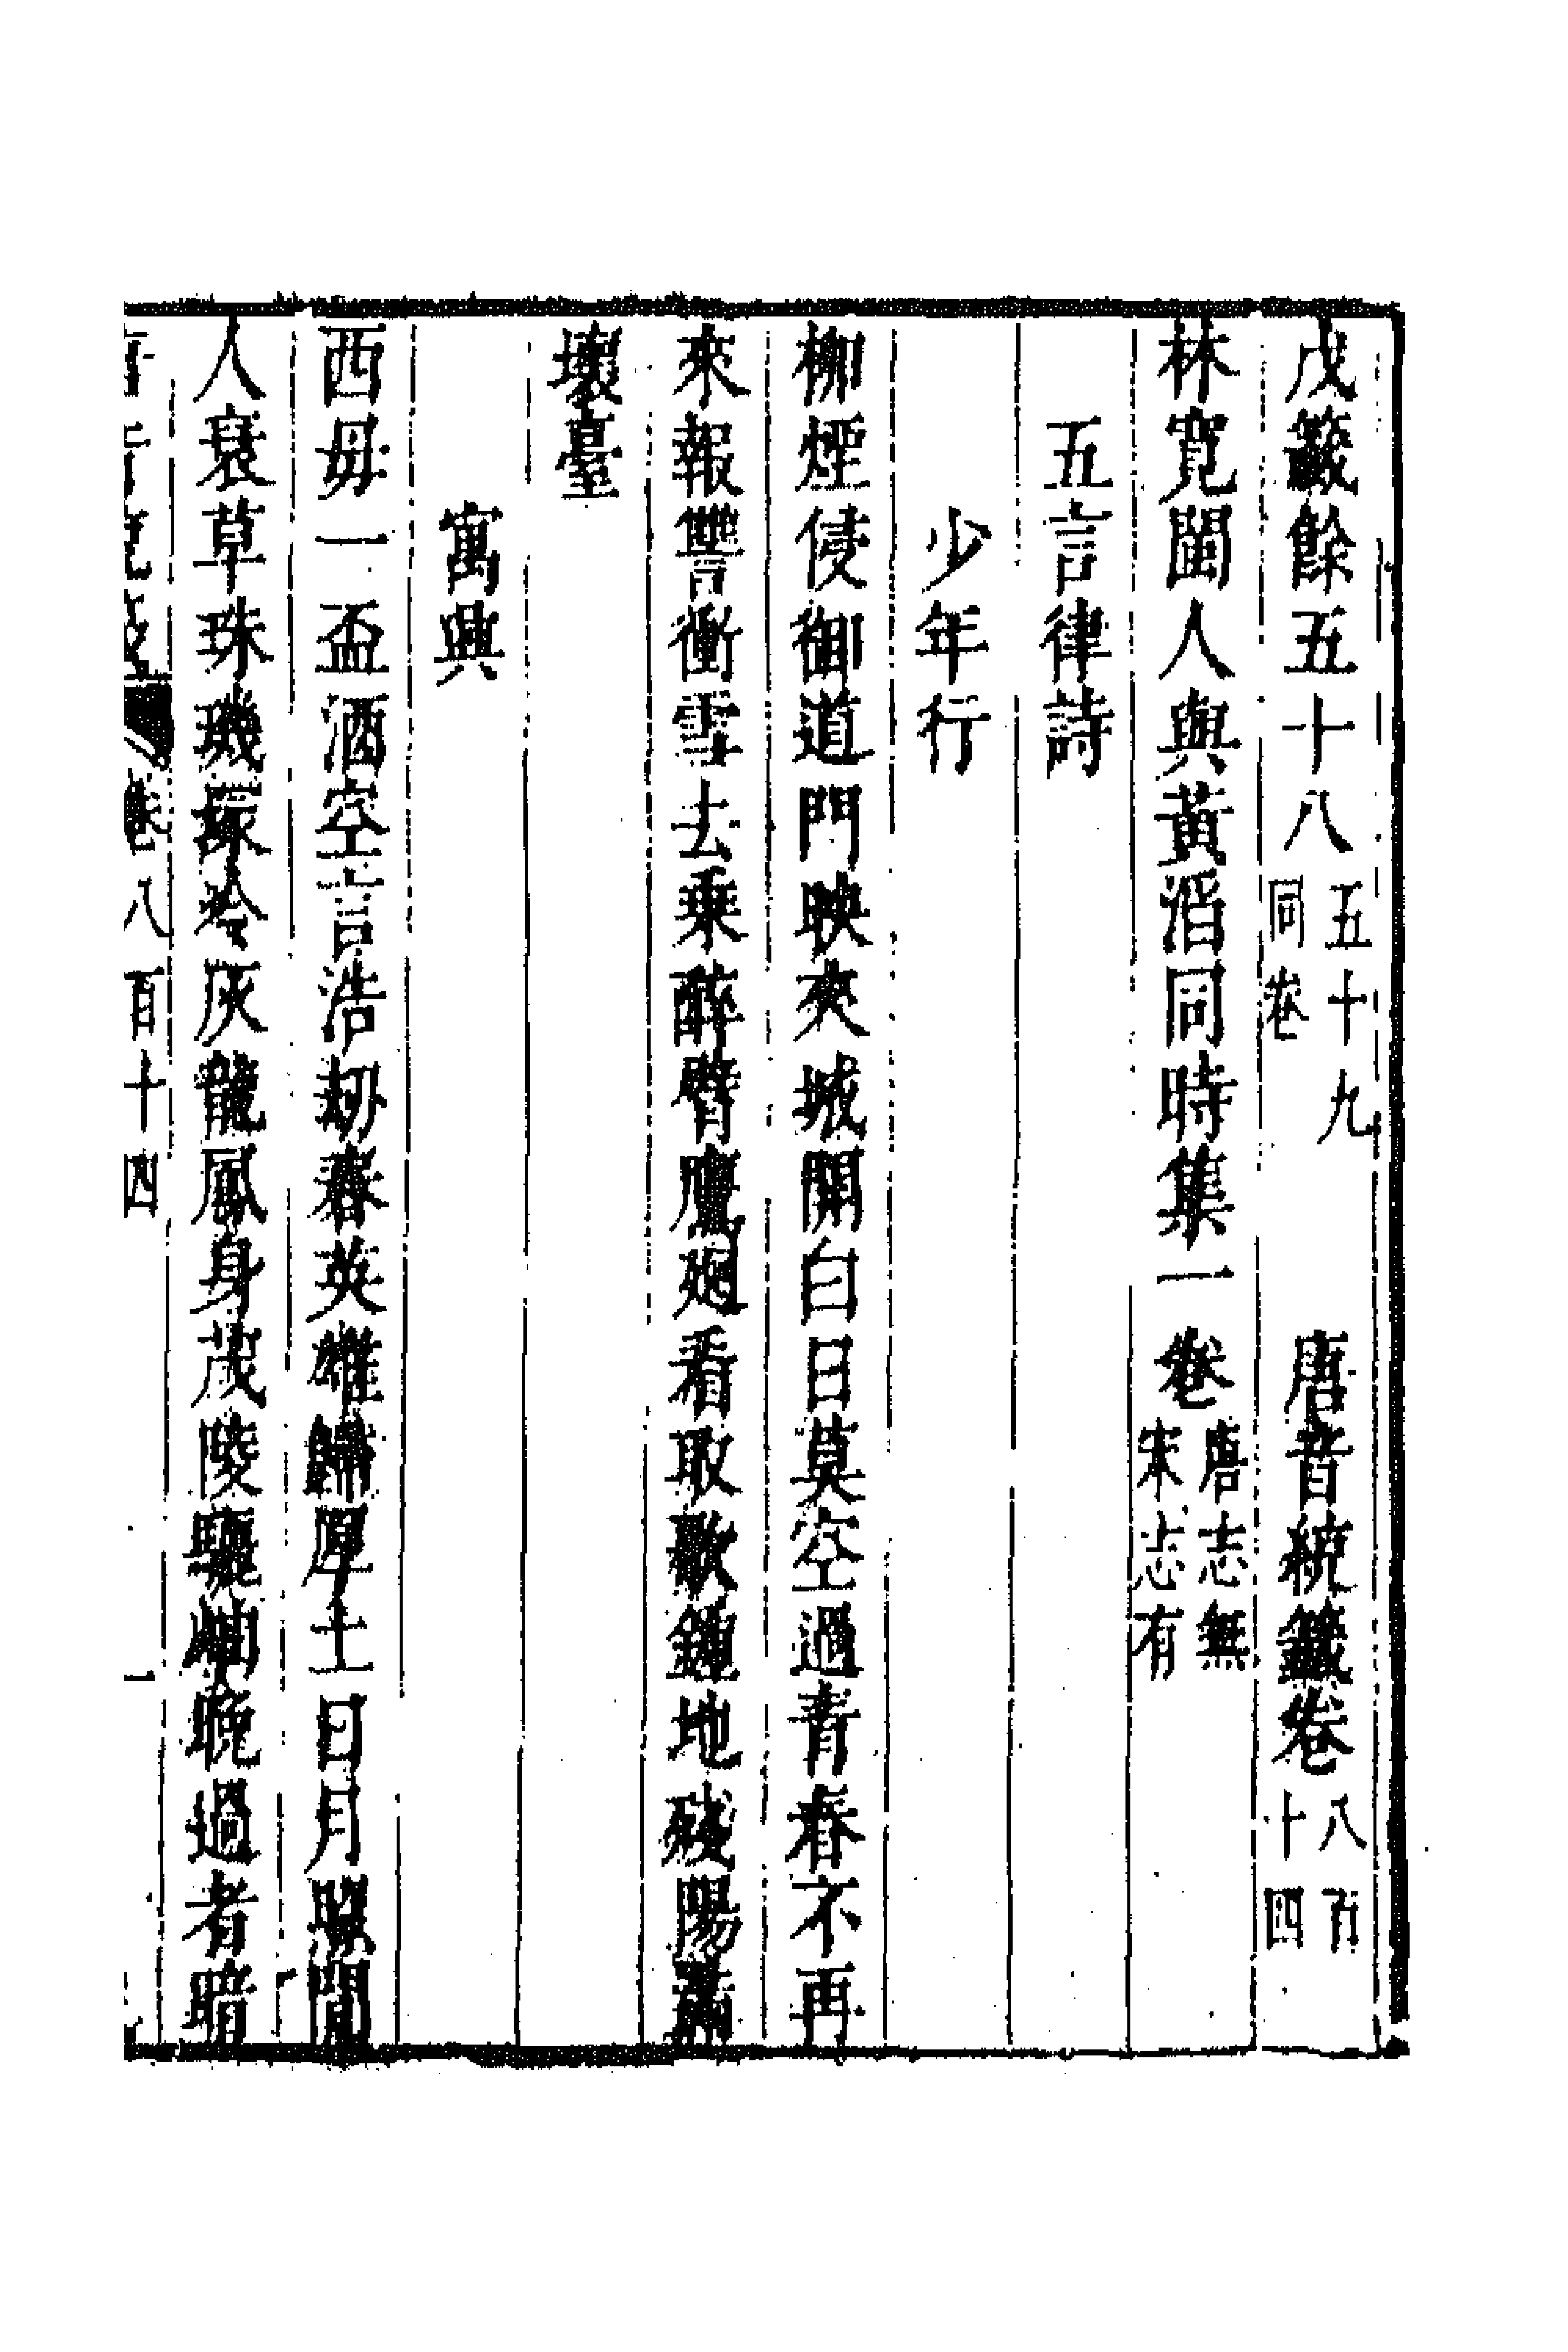 戊籖餘五十八五十九同卷　唐音統籖卷八百十四
林寬閩人與黃滔同時集一卷唐志無宋志有
五言律詩
少年行
柳煙侵御道門映夾城開白日莫空過青春不再
來報讐衝雪去乗醉臂鷹廻看取歌鍾地殘陽滿
壞臺
寓興
西毋一盃酒空言浩刼春英雄歸厚土日月照閒
人衰草珠璣冷灰龍鳳身茂陵驪岫晚過者暗
卷八百十四
一